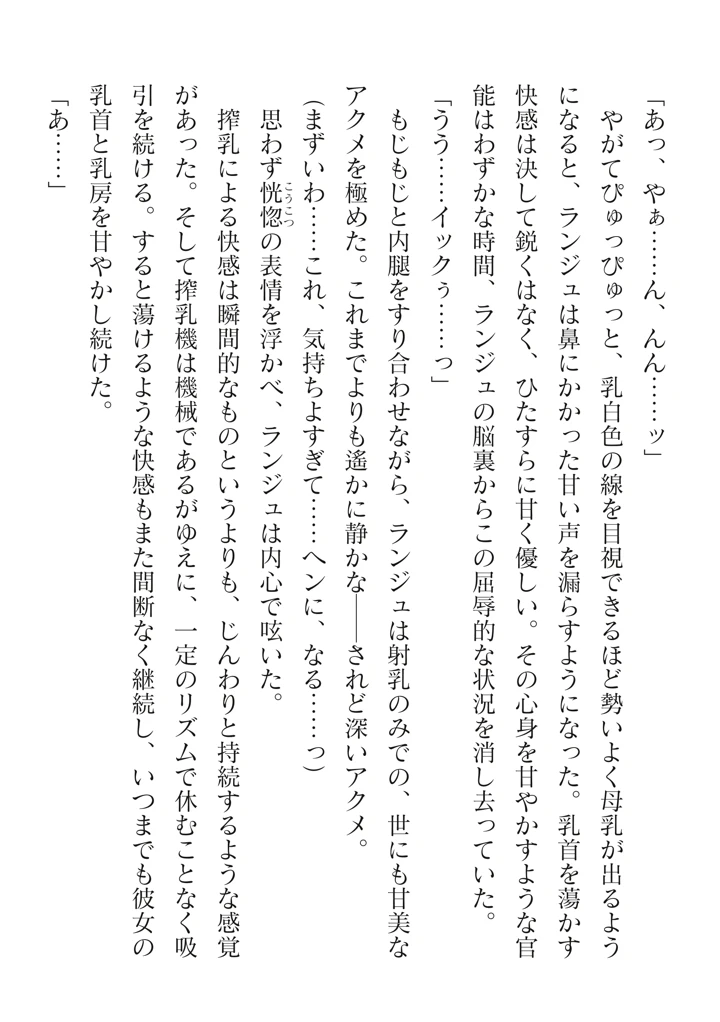 「あっ、やぁ……ん、んん……ッ」
　やがてぴゅっぴゅっと、乳白色の線を目視できるほど勢いよく母乳が出るよう
になると、ランジュは鼻にかかった甘い声を漏らすようになった。乳首を蕩かす
快感は決して鋭くはなく、ひたすらに甘く優しい。その心身を甘やかすような官
能はわずかな時間、ランジュの脳裏からこの屈辱的な状況を消し去っていた。
「うう……イックぅ……っ」
　もじもじと内腿をすり合わせながら、ランジュは射乳のみでの、世にも甘美な
アクメを極めた。これまでよりも遙かに静かな――されど深いアクメ。
（まずいわ……これ、気持ちよすぎて……ヘンに、なる……っ）
　思わず恍惚こうこつの表情を浮かべ、ランジュは内心で呟いた。
　搾乳による快感は瞬間的なものというよりも、じんわりと持続するような感覚
があった。そして搾乳機は機械であるがゆえに、一定のリズムで休むことなく吸
引を続ける。すると蕩けるような快感もまた間断なく継続し、いつまでも彼女の
乳首と乳房を甘やかし続けた。
「あ……」